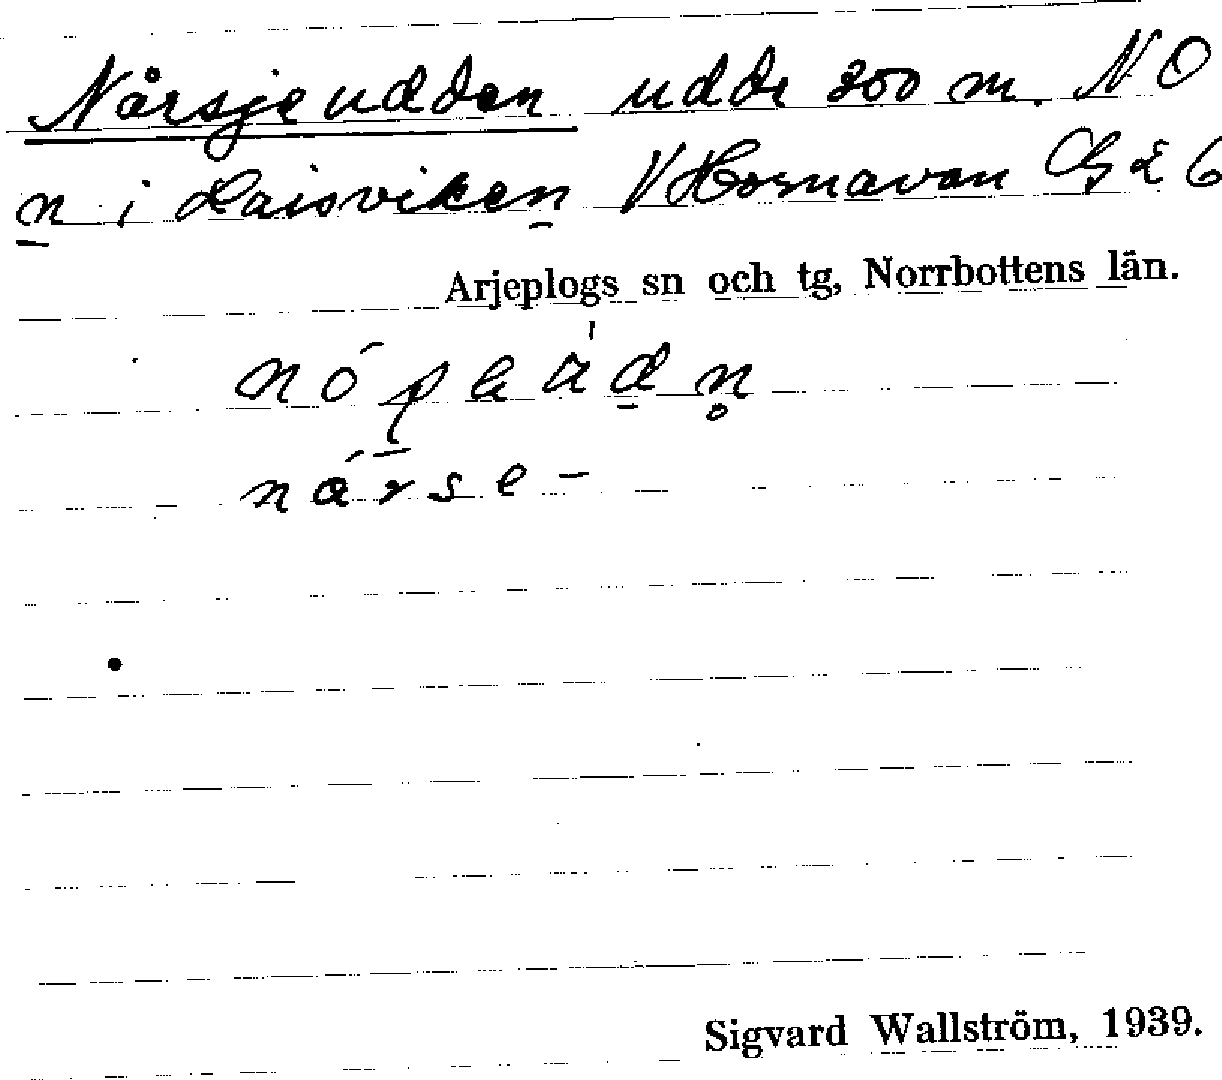 Nårsjeudden udde 300 m. NO
n i Laisviken V Hornavan G26
Arjeplogs sn och tg, Norrbottens län.
närse-
Sigvard Wallström, 1939.